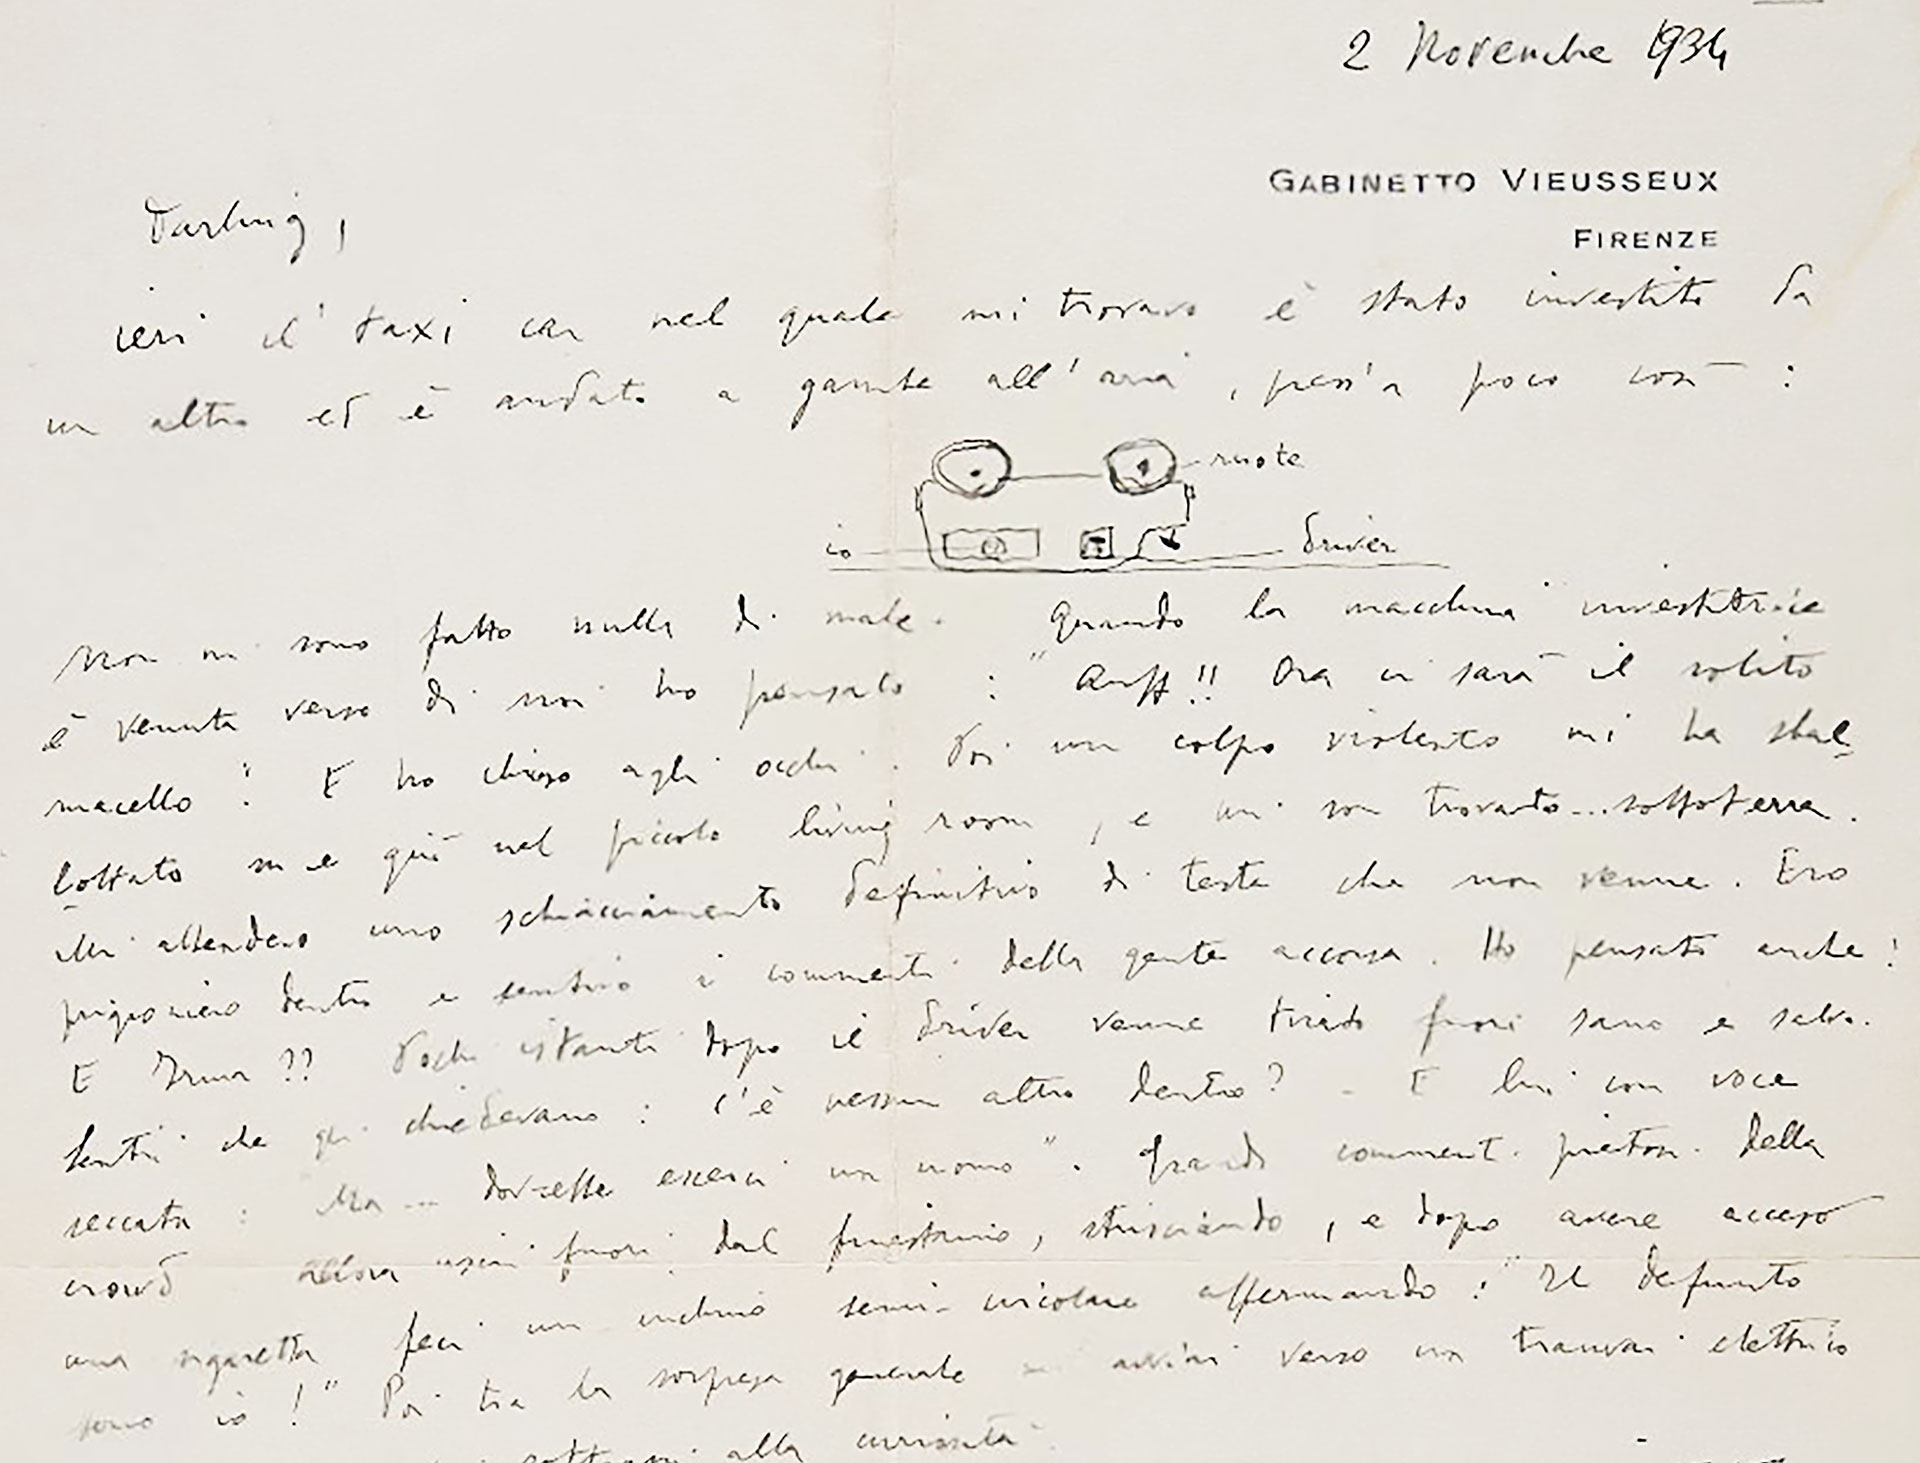 2 Novembre 1934
GABINETTO VIEUSSEUX
FIRENZE
Darling,
ieri il taxi car nel quale mi trovavo è stato investito da
un altro ed è andato a gambe all'aria, press'a poco così:
ruote
io
driver
Non mi sono fatto nulla di male. Quando la macchina investitrice
è venuta verso di noi ho pensato: "Auff!! Ora ci sarà il solito
macello". E ho chiuso gli occhi. Poi un colpo violento mi ha sbal-
lottato su e giù nel piccolo living room, e mi son trovato...sottoterra.
Mi attendevo uno schiacciamento definitivo di testa che non venne. Ero
prigioniero dentro e sentivo i commenti della gente accorsa. Ho pensato anche!
E Irma?? Pochi istanti dopo il driver venne tirato fuori sano e salvo.
Sentii che gli chiedevano: C'è nessun altro dentro? - E lui con voce
seccata: Ma... dovrebbe esserci un uomo". Grandi comment. pietosi della
crowd allora uscii fuori dal finestrino, strisciando, e dopo avere acceso
una sigaretta feci un inchino semi-circolare affermando: "Il defunto
sono io!" Poi tra la sorpresa generale mi avviai verso un tranvai elettrico
sottrarmi alla curiosità.